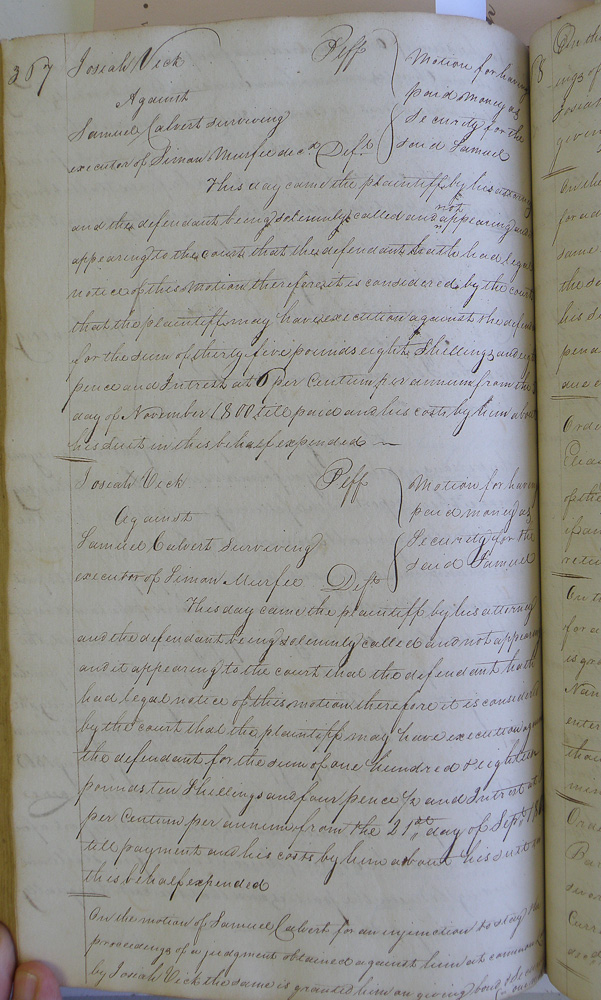 267
Josiah Vick Plff Motion for having
Against paid money as
Samuel Calvert surviving Security for the
executor of Simon Murfee dec.d Deft. said Samuel
This day came the plaintiff by his attorney
and the defendant being solemnly called and not appearing and
appearing to the court that the defendant hath had legal
notice of this motion therefore it is considered by the court
that the plaintiff may have execution against the defend
for the sum of thirty five pounds eight Shillings and
pence and Intrest at 6 per Centum per annum from the
day of November 1800 till paid and his costs by him about
his suit in this behalf expended
Josiah Vick Plff Motion for having
Against paid money as
Samuel Calvert surviving Security for the
executor of Simon Murfee Deft said Samuel
This day came the plaintiff by his attorney
and the defendant being solemnly called and not appearing
and it appearing to the court that the defendant hath
had legal notice of this motion therefore it is considered
by the court that the plaintiff may have execution
the defendant for the sum of one hundred & eighteen
pounds ten Shillings and four pence ½ and Intrest at
per Centum per annum from the 21st day of Sept.
till payment and his costs by him about his suit in
this behalf expended
On the motion of Samuel Calvert for an injunction to stay the
proceedings of a judgment obtained against him at common
by Josiah Vick the same is granted him on giving bond &